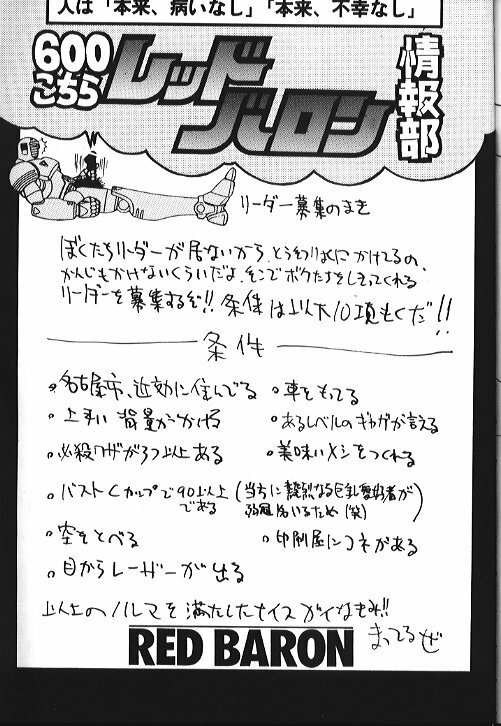 人は「本来、病いなし」「本来、不幸なし」
600
こちら
レッド
バロン
情報部
リーダー募集のまき
ぼくたちリーダーが居ないから
かんじもかけないくらいだよ。そこでボクたちをしきってくれる
リーダーを募集するぞ!!条件は以下10項もくだ!!
条件
・名古屋市、近効に住んでる
・車をもってる
・上手い背景がかける
・あるレベルのギャグが言える
・必殺ワザが3つ以上ある
・美味いメシをつくれる
・バストCカップで90以上である
(当方に熱烈なる巨乳愛好者が
いるため(笑))
・空をとべる
・印刷屋にコネがある
・目からレーザーが出る
以上のノルマを満たしたナイスガイなきみ!!
まってるぜ
RED BARON